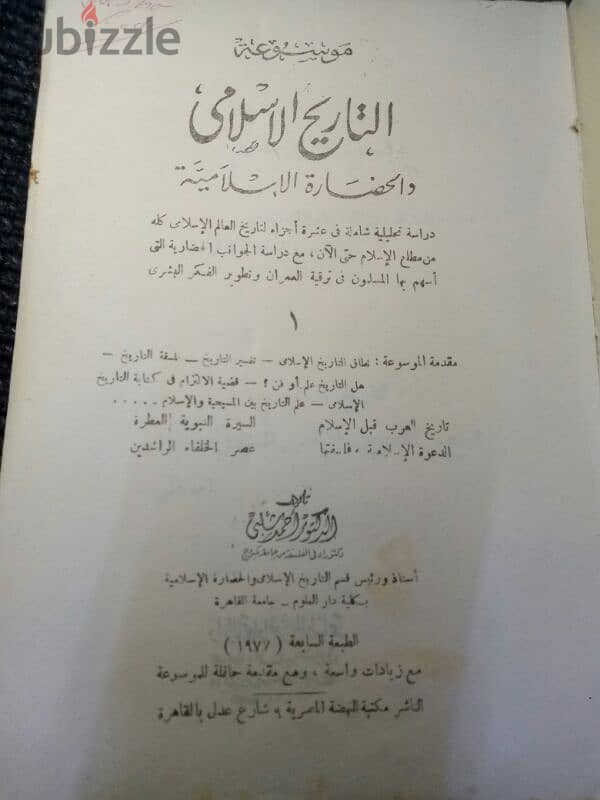 dubizzle
موسوعة
التاريخ الإسلامى
والحضارة الإسلامية
دراسة تحليلية شاملة فى عشرة أجزاء لتاريخ العالم الإسلامى كله
من مطلع الإسلام حتى الآن ، مع دراسة الجوانب الحضارية التى
أسهم بها المسلمون فى ترقية العمران وتطوير الفكر البشرى
١
مقدمة الموسوعة : نطاق التاريخ الإسلامى — تفسير التاريخ — فلسفة التاريخ —
هل التاريخ علم أو فن ؟ — قضية الالتزام فى كتابة التاريخ
الإسلامى — علم التاريخ بين المسيحية والإسلام . . . . .
تاريخ العرب قبل الإسلام السيرة النبوية العطرة
الدعوة الإسلامية وفلسفتها عصر الخلفاء الراشدين
تأليف
الدكتور أحمد شلبى
دكتوراه فى الفلسفة من جامعة كمبردج
أستاذ ورئيس قسم التاريخ الإسلامى والحضارة الإسلامية
بكلية دار العلوم – جامعة القاهرة
الطبعة السابعة
مع زيادات واسعة ، ومع مقدمة حافلة للموسوعة
الناشر مكتبة النهضة المصرية ٩ شارع عدلى بالقاهرة